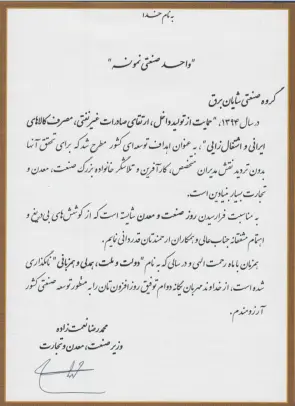 به نام خدا
"واحد صنعتی نمونه"
گروه صنعتی شایان برق
در سال ۱۳۹۴، "حمایت از تولید داخل، ارتقای صادرات غیرنفتی، مصرف کالاهای
ایرانی و اشتغال زایی"، به عنوان اهداف توسعه ای کشور مطرح شد که برای تحقق آنها
بدون تردید نقش مدیران متخصص، کارآفرین و تلاشگر خانواده بزرگ صنعت، معدن و
تجارت بسیار بنیادین است.
به مناسبت فرارسیدن روز صنعت و معدن شایسته است که از کوشش های بی دریغ و
اهتمام مشتاقانه جناب عالی و همکاران ارجمندتان قدردانی نمایم.
همزمان با ماه رحمت الهی و در سالی که به نام "دولت و ملت، همدلی و همزبانی" نامگذاری
شده است، از خداوند مهربان یگانه دوام توفیق روزافزون تان را به منظور توسعه صنعتی کشور
آرزومندم.
محمدرضا نعمت زاده
وزیر صنعت، معدن و تجارت